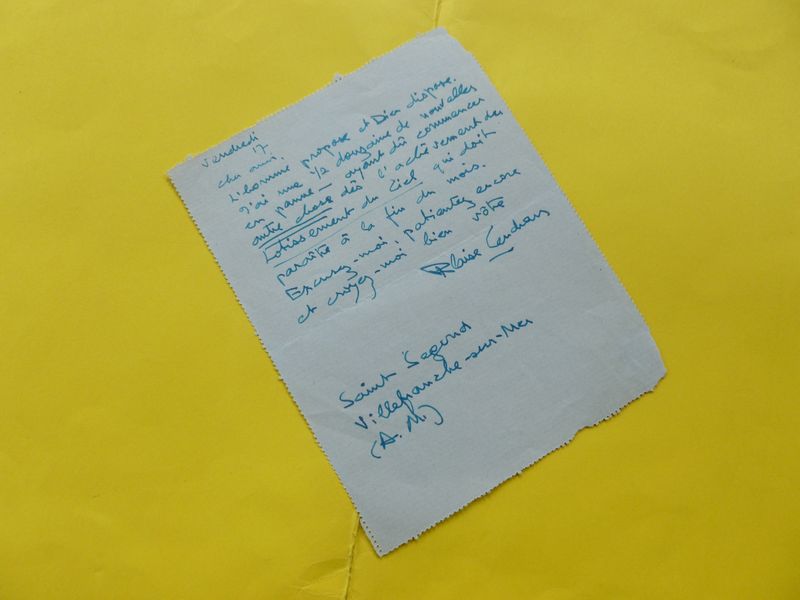 Vendredi
17
cher ami,
L'homme propose et Dieu dispose.
J'ai une 1/2 douzaine de nouvelles
en panne – ayant dû commencer
autre chose dès l'achèvement du
Lotissement du Ciel qui doit
paraître à la fin du mois.
Excusez-moi, patientez encore
et croyez-moi bien vôtre
Blaise Cendrars
Saint Segond
Villefranche-sur-Mer
(A.M.)